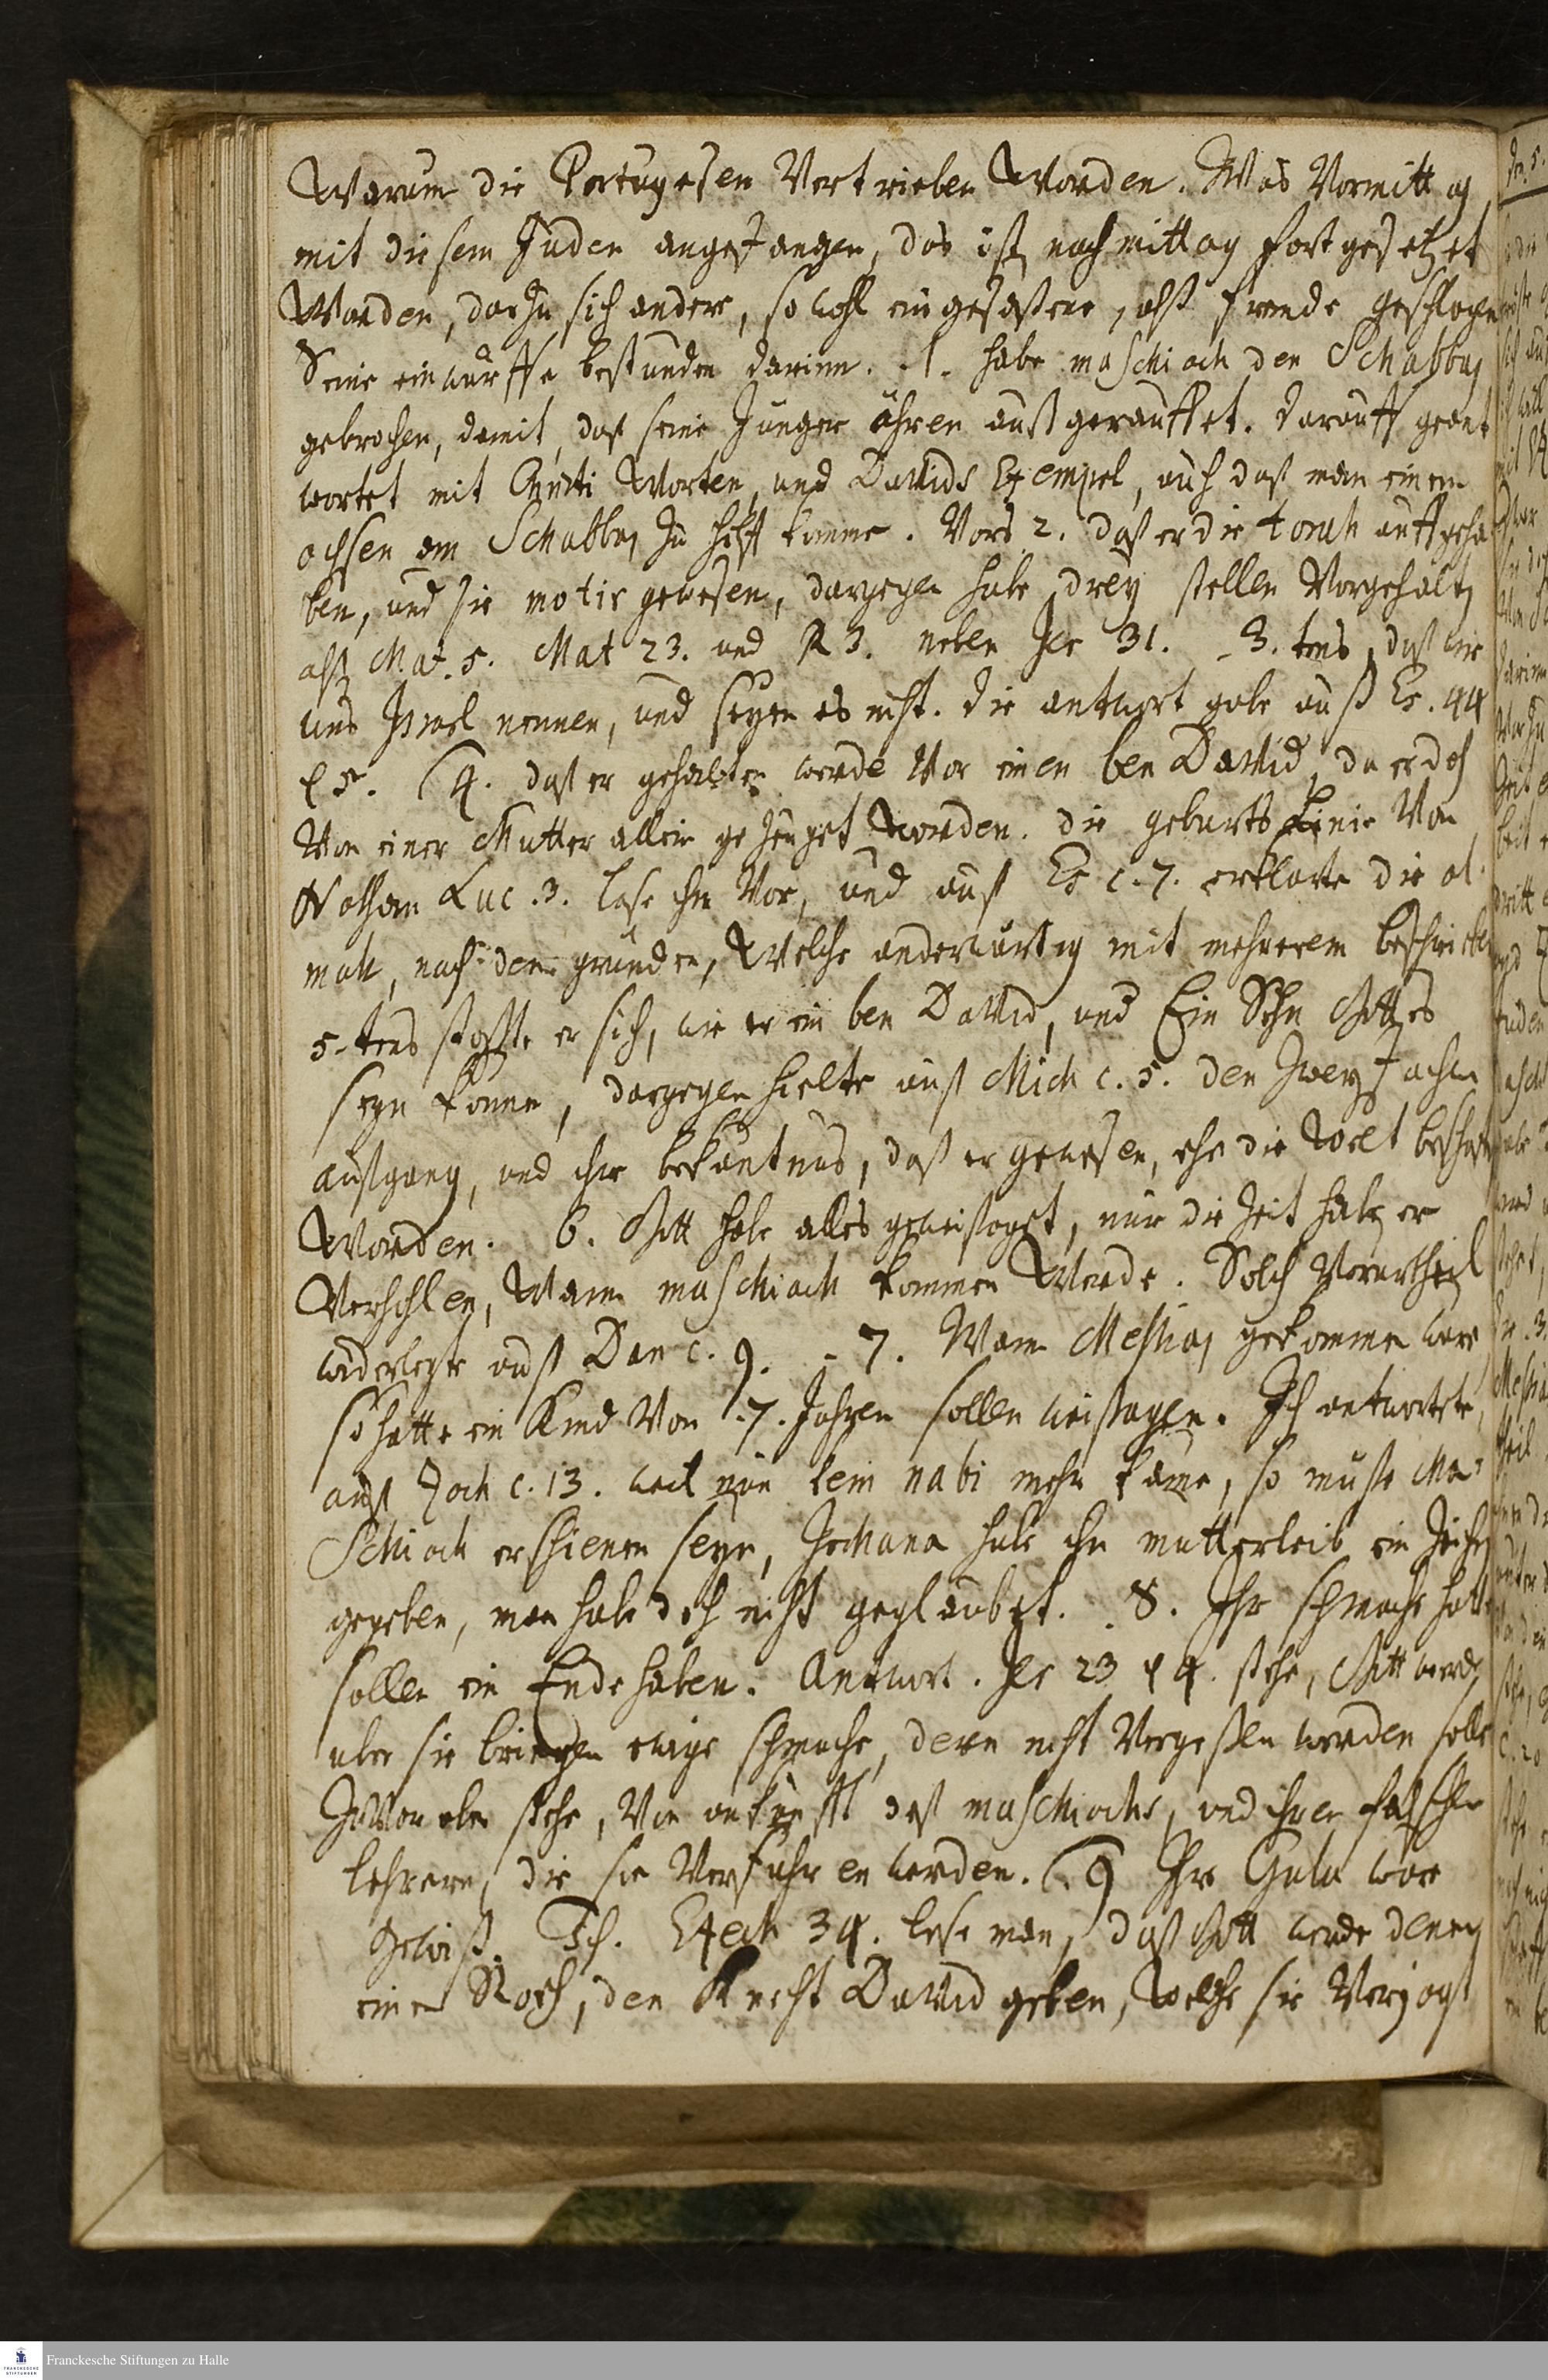 Warum die Portugesen Vertrieben Worden. Was Vormittag
mit diesem Juden angefangen, das ist nachmittag fortgesetzet
Worden, darzu sich andere, so wohl eingesaßene, alß fremde geschlagen
Seine einwurffe bestunden darinn. 1. habe maschiach den Schabbas
gebrochen, damit, daß seine Junger ähren außgerauffet. darauff geant
wortet mit Christi Worten, und Davids Exempel, auch daß man einem
ochsen am Schabbas zu hilff komme. Vors 2. daß er die torah auffgeha
ben, und sie motir gewesen, dargegen habe drey stellen Vorgehalten
alß Mat. 5. Mat 23. und R 3. neben Jer 31. 3. tens, daß wir
uns Israel nennen, und seyen es nicht. die antwort gabe auß Es. 44
v 5. 4. daß er gehalten werde Vor einen ben David, da er doch
Von einer Mutter allein gezeuget worden. die geburts Linie Von
Nathan Luc. 3. lase ihm Vor, und auß Es c. 7. erklarte die al
mah, nach den grunden, Welche anderwärtig mit mehrerem beschrieben
5-tens stoßte er sich, wie er ein ben David, und Ein Sohn Gottes
seyn konne, dargegen hielte auß Mich c. 5. den zweyfachen
außgang, und ihr bekäntnus, daß er gewesen, ehe die Welt beschaffen
Worden. 6. Gott habe alles geweissaget, nur die Zeit habe er
Verhohlen, Wann maschiach kommen Werde. Solch Vorurtheil
widerlegte auß Dan c. 9. - 7. Wann Messias gekommen ware
so hatte ein Kind Von 7. Jahren sollen weissagen. Ich antwortete,
auß Zach c. 13. weil nun kein nabi mehr käme, so muste Ma-
schiach erschienen seyn, Jochanan habe im mutterleib ein Zeichen
gegeben, man habe doch nicht geglaubet. 8. Ihr schmach hatte
sollen ein Ende haben. Antwort. Jer 23 v 4. stehe, Gott werde
uber sie bringen ewige schmach, deren nicht Vergessen werden solle
Zuvor aber stehe, Von ankunfft deß maschiachs, und ihren falschen
lehrern, die sie Verfuhren werden. 9 Ihr Gula ware
Gewiß. Ich. Ezech 34. lese man, daß Gott werde denen
einen Roeh, den Knecht David geben, Welche sie Verjagt
Franckesche Stiftungen zu Halle